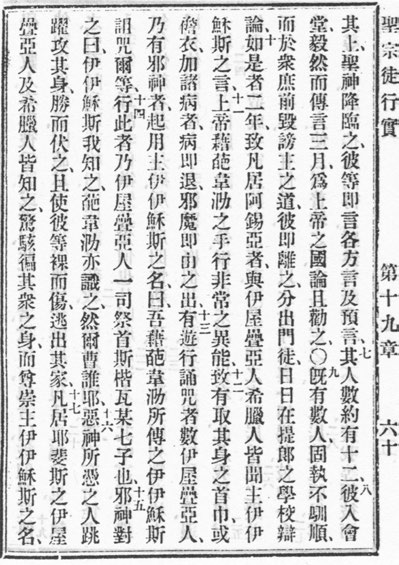 聖宗徒行實 第十九章 六十
其上聖神降臨之彼等即言各方言及預言、七其人數約有十二、八彼入會
堂毅然而傳言三月爲上帝之國論且勸之〇九旣有數人固執不馴順、
而於衆庶前毀謗主之道彼即離之分出門徒日日在提郎之學校辯
論、十如是者二年致凡居阿錫亞者與伊屋疊亞人希臘人皆聞主伊伊
穌斯之言、十一上帝藉葩韋泐之手行非常之異能、十二致有取其身之首巾或
襜衣加諸病者病即退邪魔即由之出、十三有遊行誦咒者數伊屋疊亞人、
乃有邪神者起用主伊伊穌斯之名曰吾藉葩韋泐所傳之伊伊穌斯
詛咒爾等、十四行此者乃伊屋疊亞人一司祭首斯楷瓦某七子也、十五邪神對
之曰伊伊穌斯我知之葩韋泐亦識之然爾曹誰耶、十六惡神所憑之人跳
躍攻其身勝而伏之且使彼等裸而傷逃出其家、十七凡居耶斐斯之伊屋
疊亞人及希臘人皆知之驚駭徧其衆之身而尊崇主伊伊穌斯之名